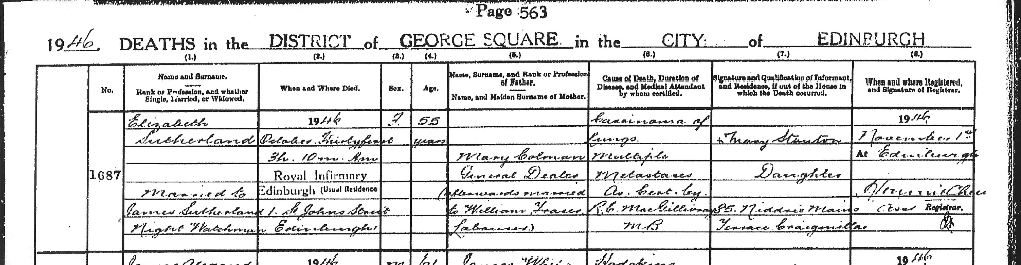 Page 563
1946. DEATHS in the DISTRICT of GEORGE SQUARE in the CITY of EDINBURGH
(1.) (2.) (3.) (4.) (5.) (6.) (7.) (8.)
No.
Name and Surname.
Rank or Profession, and whether Single, Married, or Widowed.
When and Where Died.
Sex.
Age.
Name, Surname, and Rank or Profession of Father.
Name, and Maiden Surname of Mother.
Cause of Death, Duration of Disease, and Medical Attendant by whom certified.
Signature and Qualification of Informant, and Residence, if out of the House in which the Death occurred.
When and where Registered, and Signature of Registrar.
1687
Elizabeth
Sutherland
Married to
James Sutherland
Night Watchman
1946
October Thirtyfirst
3h. 10m. AM
Royal Infirmary
Edinburgh (Usual Residence
1. St Johns Street
Edinburgh)
F
55
years
Mary Colman
General Dealer
(afterwards married
to William Fraser
Carcinoma of
Lungs
Multiple
Metastases
As Cert. by
R.C. MacGillivray
MB
Mary Stanton
Daughter
85. Niddrie Mains
Terrace Craigmillar
1946
November 1st
At Edinburgh
Registrar.
1946
M
1946